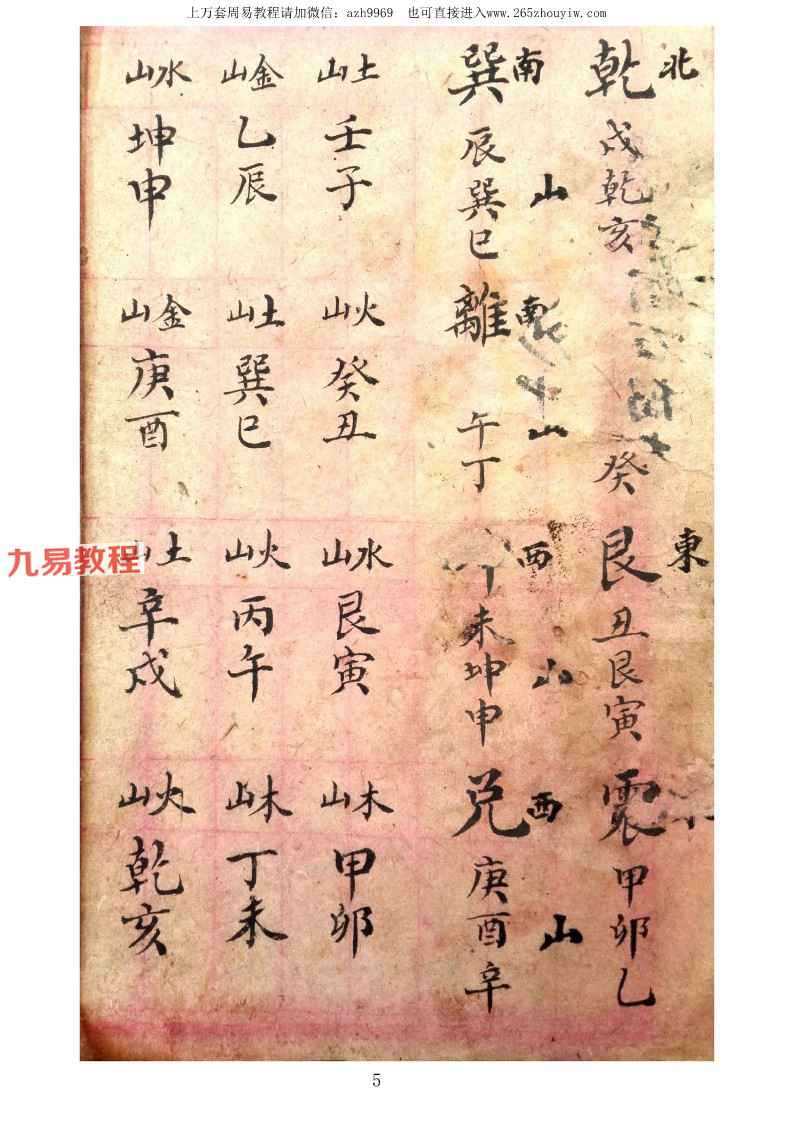 上万套周易教程请加微信：azh9969 也可直接进入www.265zhouyiw.com
北
乾 戌乾亥
癸
東
艮 丑艮寅
震 甲卯乙
南山
巽 辰巽巳
南山
離 午丁
西山
未坤申
西山
兑 庚酉辛
土山 壬子
火山 癸丑
水山 艮寅
木山 甲卯
金山 乙辰
土山 巽巳
火山 丙午
木山 丁未
水山 坤申
金山 庚酉
土山 辛戌
火山 乾亥
九易教程
5